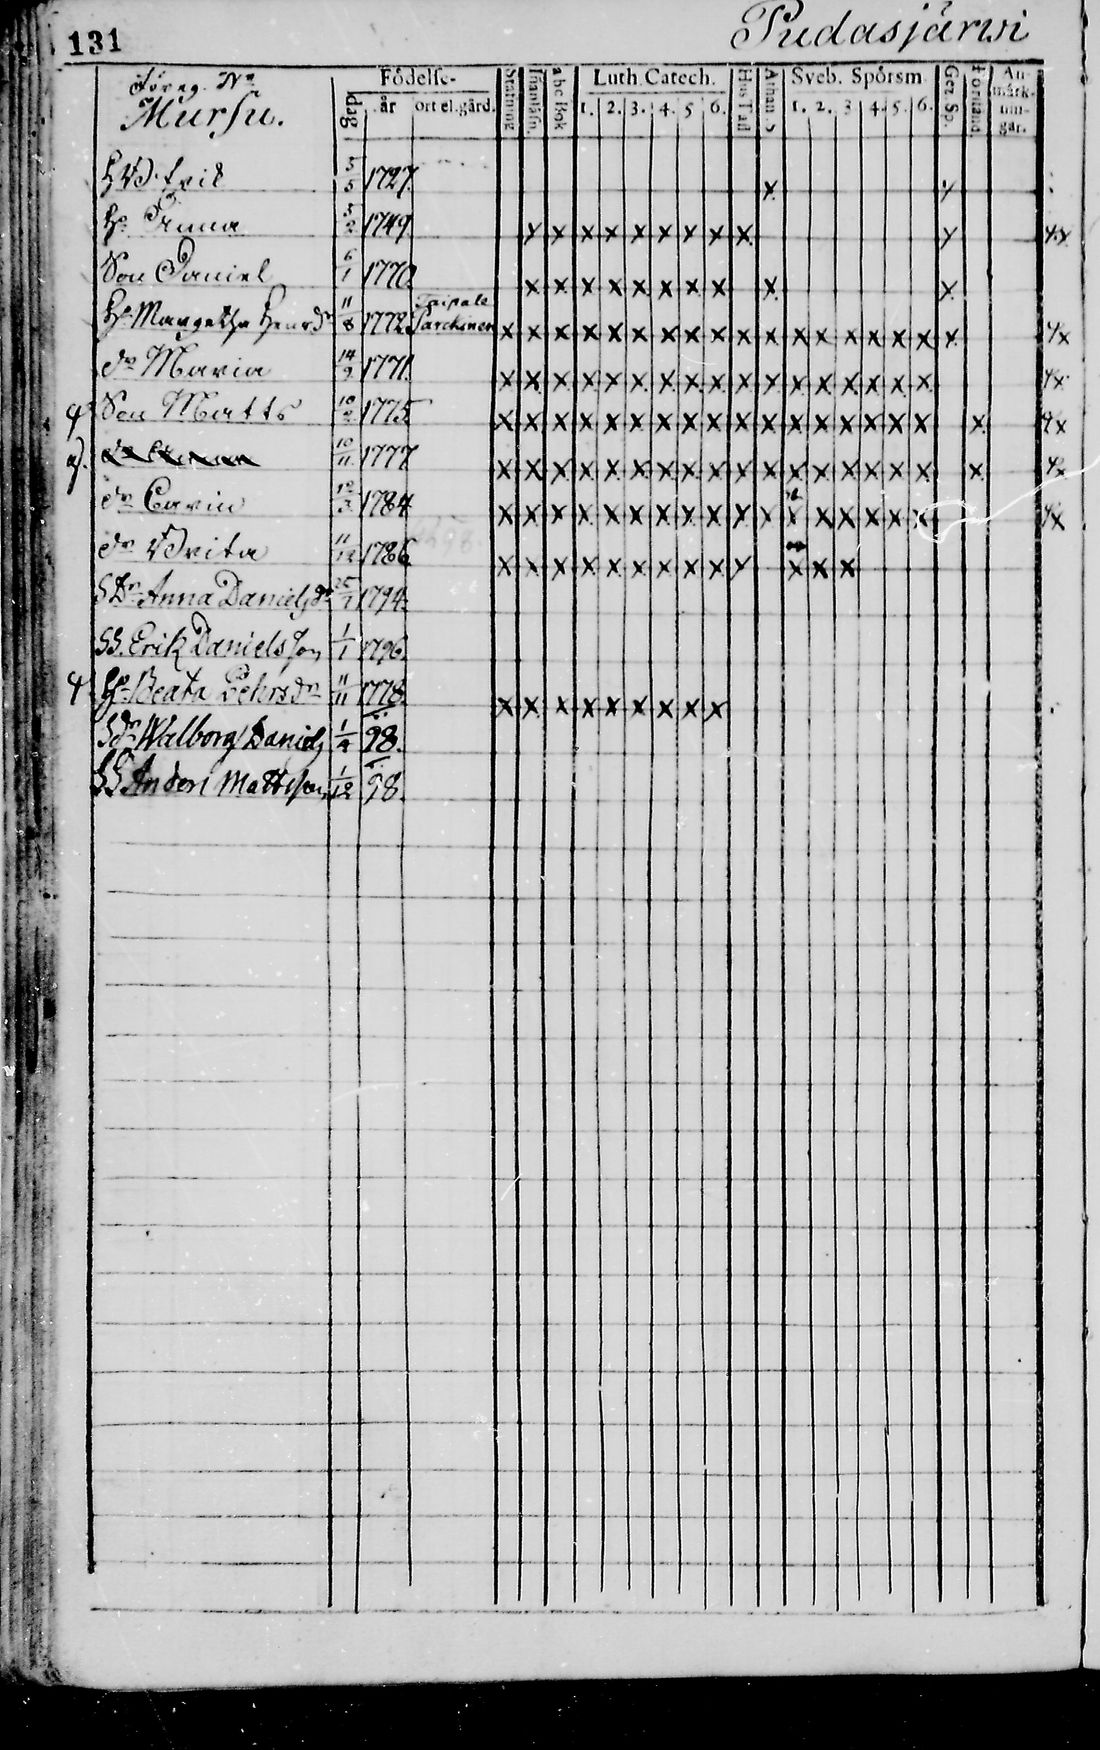 131
Pudasjärwi
Föreg. No
Mursu.
Födelse-
dag
år
ort el. gård.
Stafning
Innanläsn.
abc Bok
Luth. Catech.
1. 2. 3. 4. 5 6.
Hus Tafl
Athan. S
Sveb. Spörsm
1. 2. 3 4. 5. 6.
Gez. Sp.
Förstånd.
An-
märk-
nin-
gar.
5/5 1727 x x
Hu Anna 5/2 1749 x x x x x x x x x x
Son Daniel 6/1 1770 x x x x x x x x x x
Hu Margetha Henrdr 11/8 1772 x x x x x x x x x x x x x x x x x x
dr Maria 14/9 1771 x x x x x x x x x x x x x x x x x
Son Matts 10/2 1775 x x x x x x x x x x x x x x x x x x
10/11 1777 x x x x x x x x x x x x x x x x x x
dr Carin 12/3 1784 x x x x x x x x x x x x x x x x x
dr Brita 11/12 1786 x x x x x x x x x x x x x
SDr Anna Danielsdr 25/7 1794
SS. Erik Danielsson 1/1 1796
Hu Beata Pehrsdr 11/11 1778 x x x x x x x x x
Sdr Walborg Daniels 1/4 98.
SS Anders Mattsson 1/12 98.